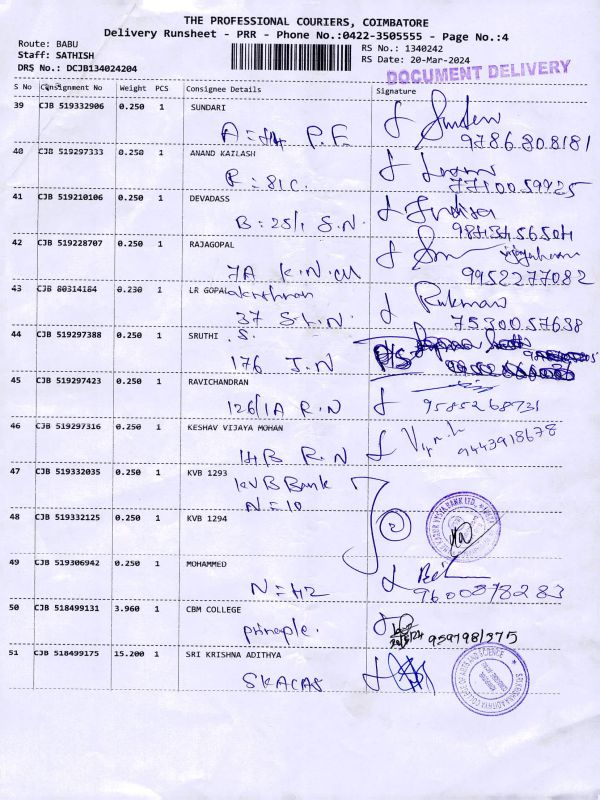 THE PROFESSIONAL COURIERS, COIMBATORE
Delivery Runsheet - PRR - Phone No.:0422-3505555 - Page No.:4
Route: BABU
RS No.: 1340242
Staff: SATHISH
RS Date: 20-Mar-2024
DRS No.: DCJB134024204
DOCUMENT DELIVERY
S No Consignment No Weight PCS Consignee Details Signature
39 CJB 519332906 0.250 1 SUNDARI
A = 44 P.F. 9786808181
40 CJB 519297333 0.250 1 ANAND KAILASH
F = 81C. 7710059925
41 CJB 519210106 0.250 1 DEVADASS
B = 25/1 S.N.
42 CJB 519228707 0.250 1 RAJAGOPAL
7A K.N.M 9952277082
43 CJB 80314184 0.230 1 LR GOPALakrishnan
37 S.L.N. Rukman 7530057638
44 CJB 519297388 0.250 1 SRUTHI .S.
176 J.N
45 CJB 519297423 0.250 1 RAVICHANDRAN
126/1A R.N 9585268731
46 CJB 519297316 0.250 1 KESHAV VIJAYA MOHAN
14B R.N 9443918678
47 CJB 519332035 0.250 1 KVB 1293
KVB Bank
N = 10
48 CJB 519332125 0.250 1 KVB 1294
2
49 CJB 519306942 0.250 1 MOHAMMED
N = 42 9600878283
50 CJB 518499131 3.960 1 CBM COLLEGE
principle. 9597981375
51 CJB 518499175 15.200 1 SRI KRISHNA ADITHYA
SKACAS